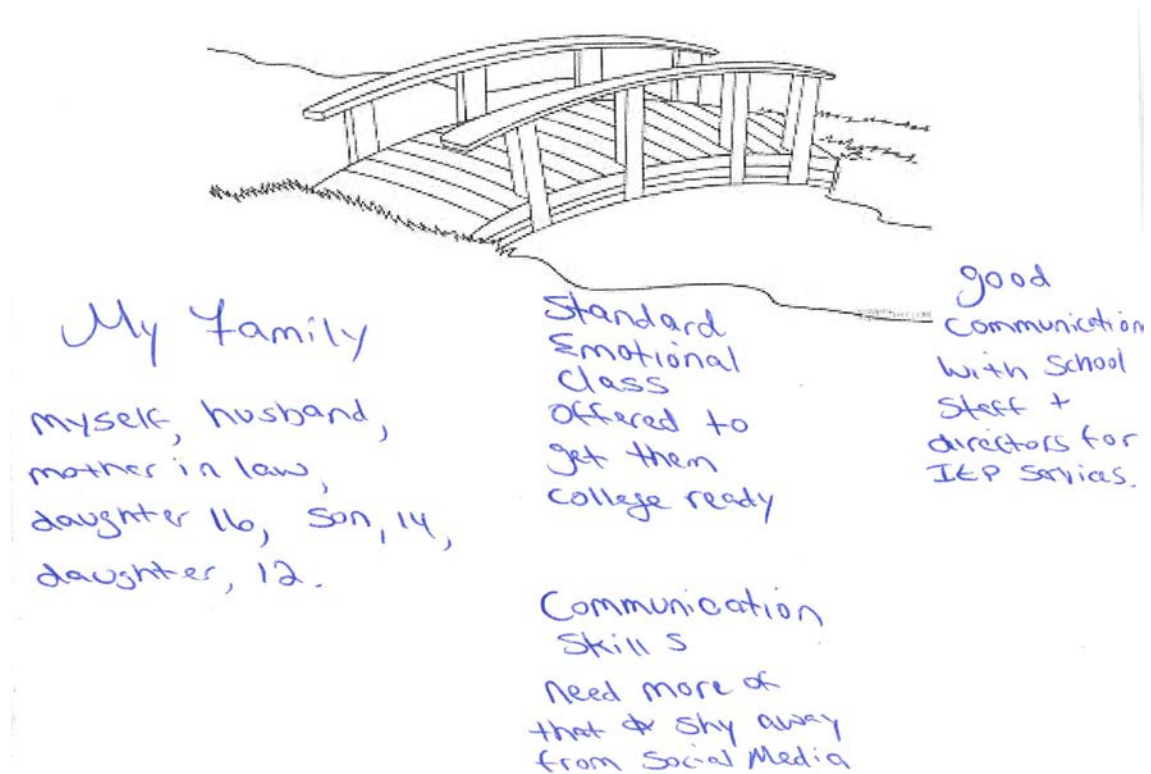 My Family
myself, husband,
mother in law,
daughter 16, son, 14,
daughter, 12.
Standard
Emotional
Class
Offered to
get them
college ready
Communication
Skills
need more of
that & shy away
from Social Media
good
Communication
with School
Staff +
directors for
IEP Services.